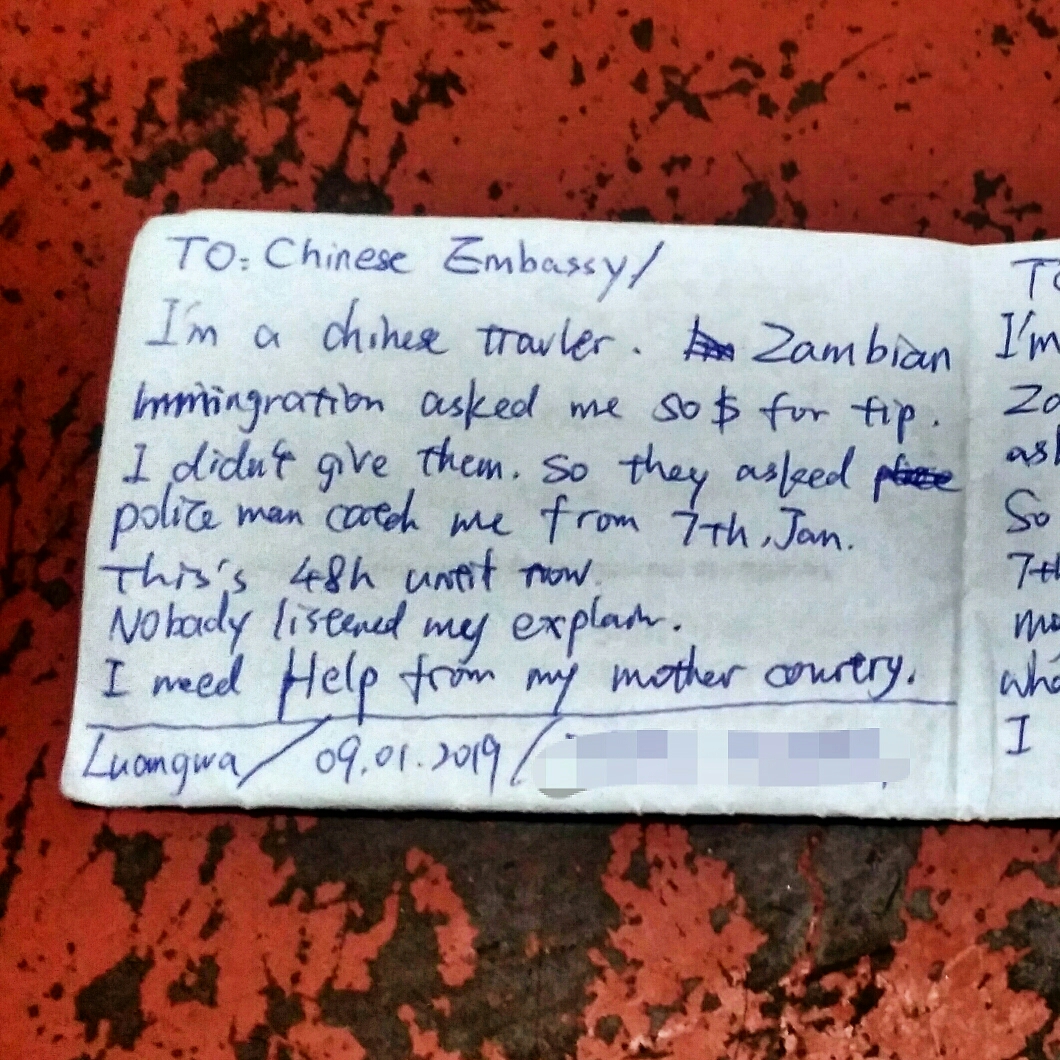 TO: Chinese Embassy/
I'm a chinese travler. Zambian
Immingration asked me 50$ for tip.
I didn't give them. So they asked
police man catch me from 7th, Jan.
This's 48h until now.
Nobady listened my explain.
I need Help from my mother country.
Luangwa/ 09.01.2019/
I'm
Zo
ask
So
7th
who
I